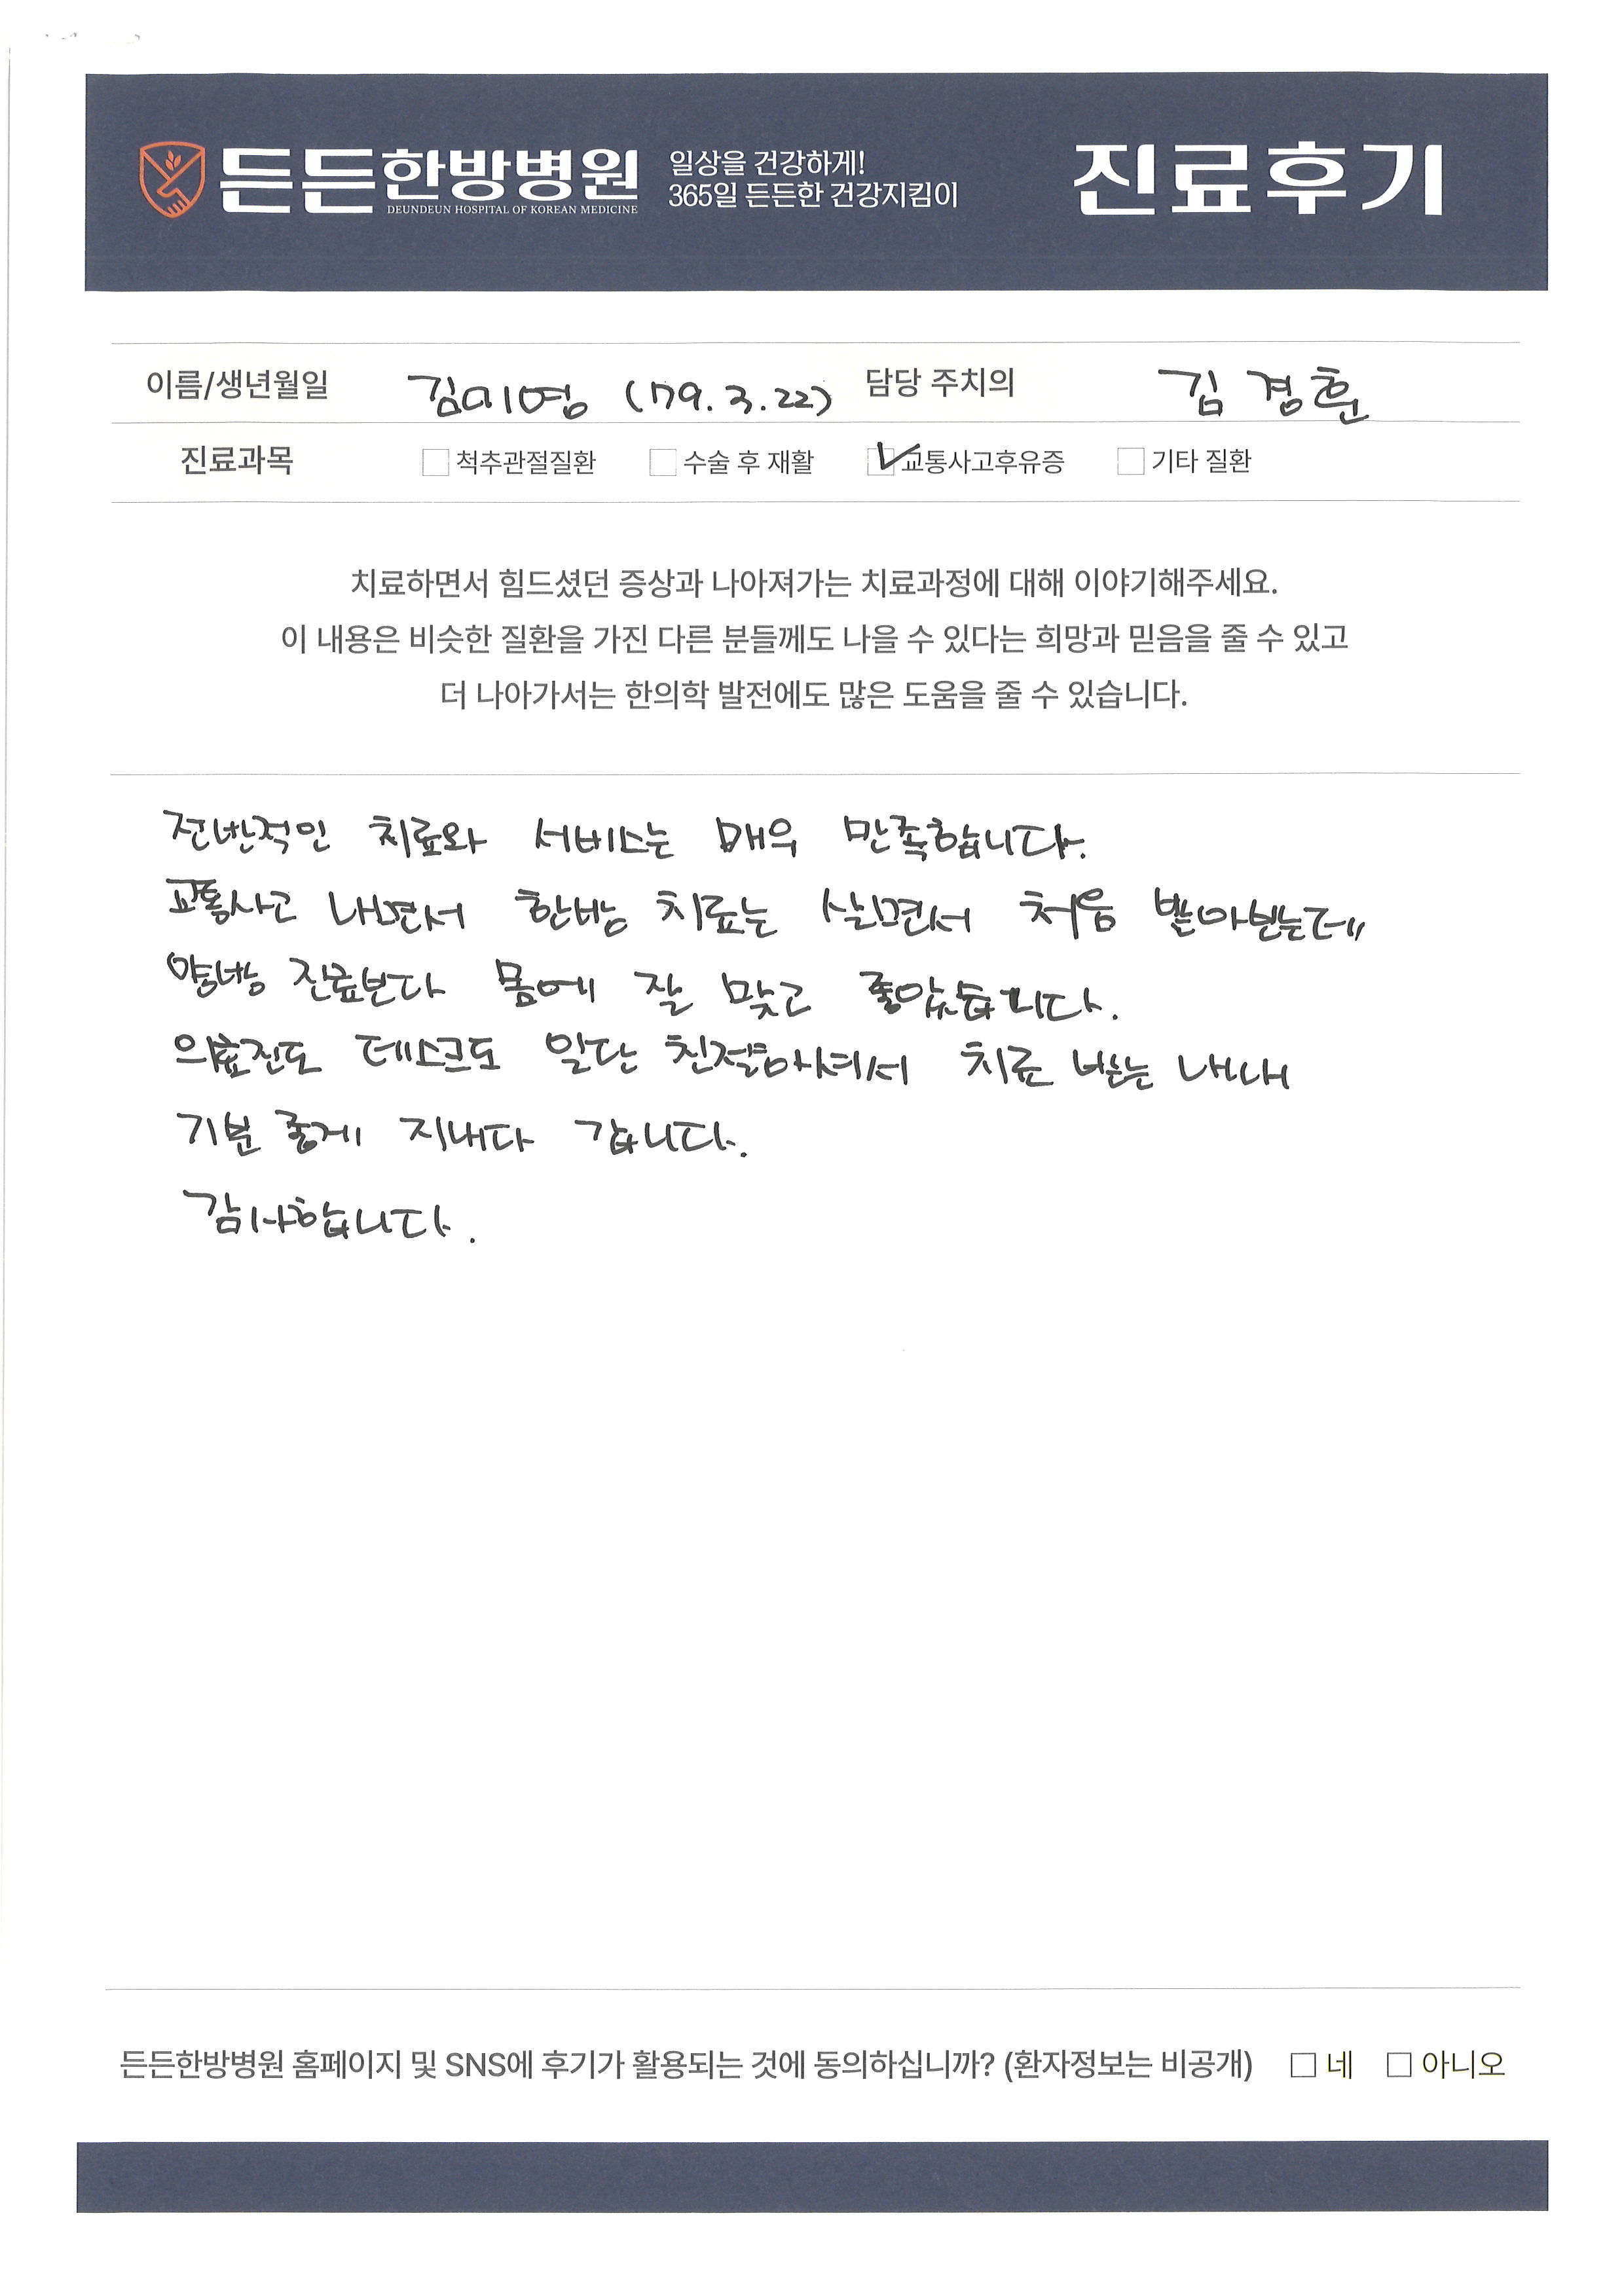 든든한방병원
DEUNDEUN HOSPITAL OF KOREAN MEDICINE
일상을 건강하게!
365일 든든한 건강지킴이
진료후기
이름/생년월일 김미영 (79. 3. 22) 담당 주치의 김경훈
진료과목 척추관절질환 수술 후 재활 교통사고후유증 기타 질환
치료하면서 힘드셨던 증상과 나아져가는 치료과정에 대해 이야기해주세요.
이 내용은 비슷한 질환을 가진 다른 분들께도 나을 수 있다는 희망과 믿음을 줄 수 있고
더 나아가서는 한의학 발전에도 많은 도움을 줄 수 있습니다.
전반적인 치료와 서비스는 매우 만족합니다.
교통사고 내면서 한방 치료는 살면서 처음 받아봤는데
양방 진료보다 몸에 잘 맞고 좋았습니다.
의료진도 데스크도 일단 친절하셔서 치료 받는 내내
기분 좋게 지내다 갑니다.
감사합니다.
든든한방병원 홈페이지 및 SNS에 후기가 활용되는 것에 동의하십니까? (환자정보는 비공개) 네 아니오